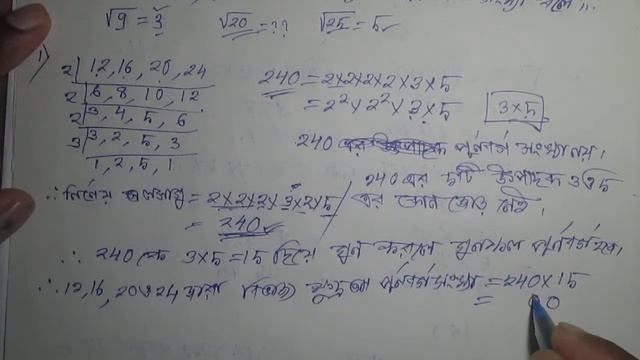 √9 = 3 √20 = ?? √25 = 5
1) 2 | 12, 16, 20, 24
2 | 6, 8, 10, 12
2 | 3, 4, 5, 6
3 | 3, 2, 5, 3
1, 2, 5, 1
240 = 2×2×2×2×3×5
= 2²×2²×3×5 3×5
240 পূর্ণবর্গ সংখ্যা নয়।
240 এর দুটি উৎপাদক 3 ও 5
এর কোন জোড় নেই।
∴ নির্ণেয় ল সা গু = 2×2×2×3×2×5
= 240
∴ 240 কে 3×5 = 15 দিয়ে গুণ করলে গুণফল পূর্ণবর্গ হবে।
∴ 12, 16, 20 ও 24 দ্বারা বিভাজ্য ক্ষুদ্রতম পূর্ণবর্গ সংখ্যা = 240×15
= 00